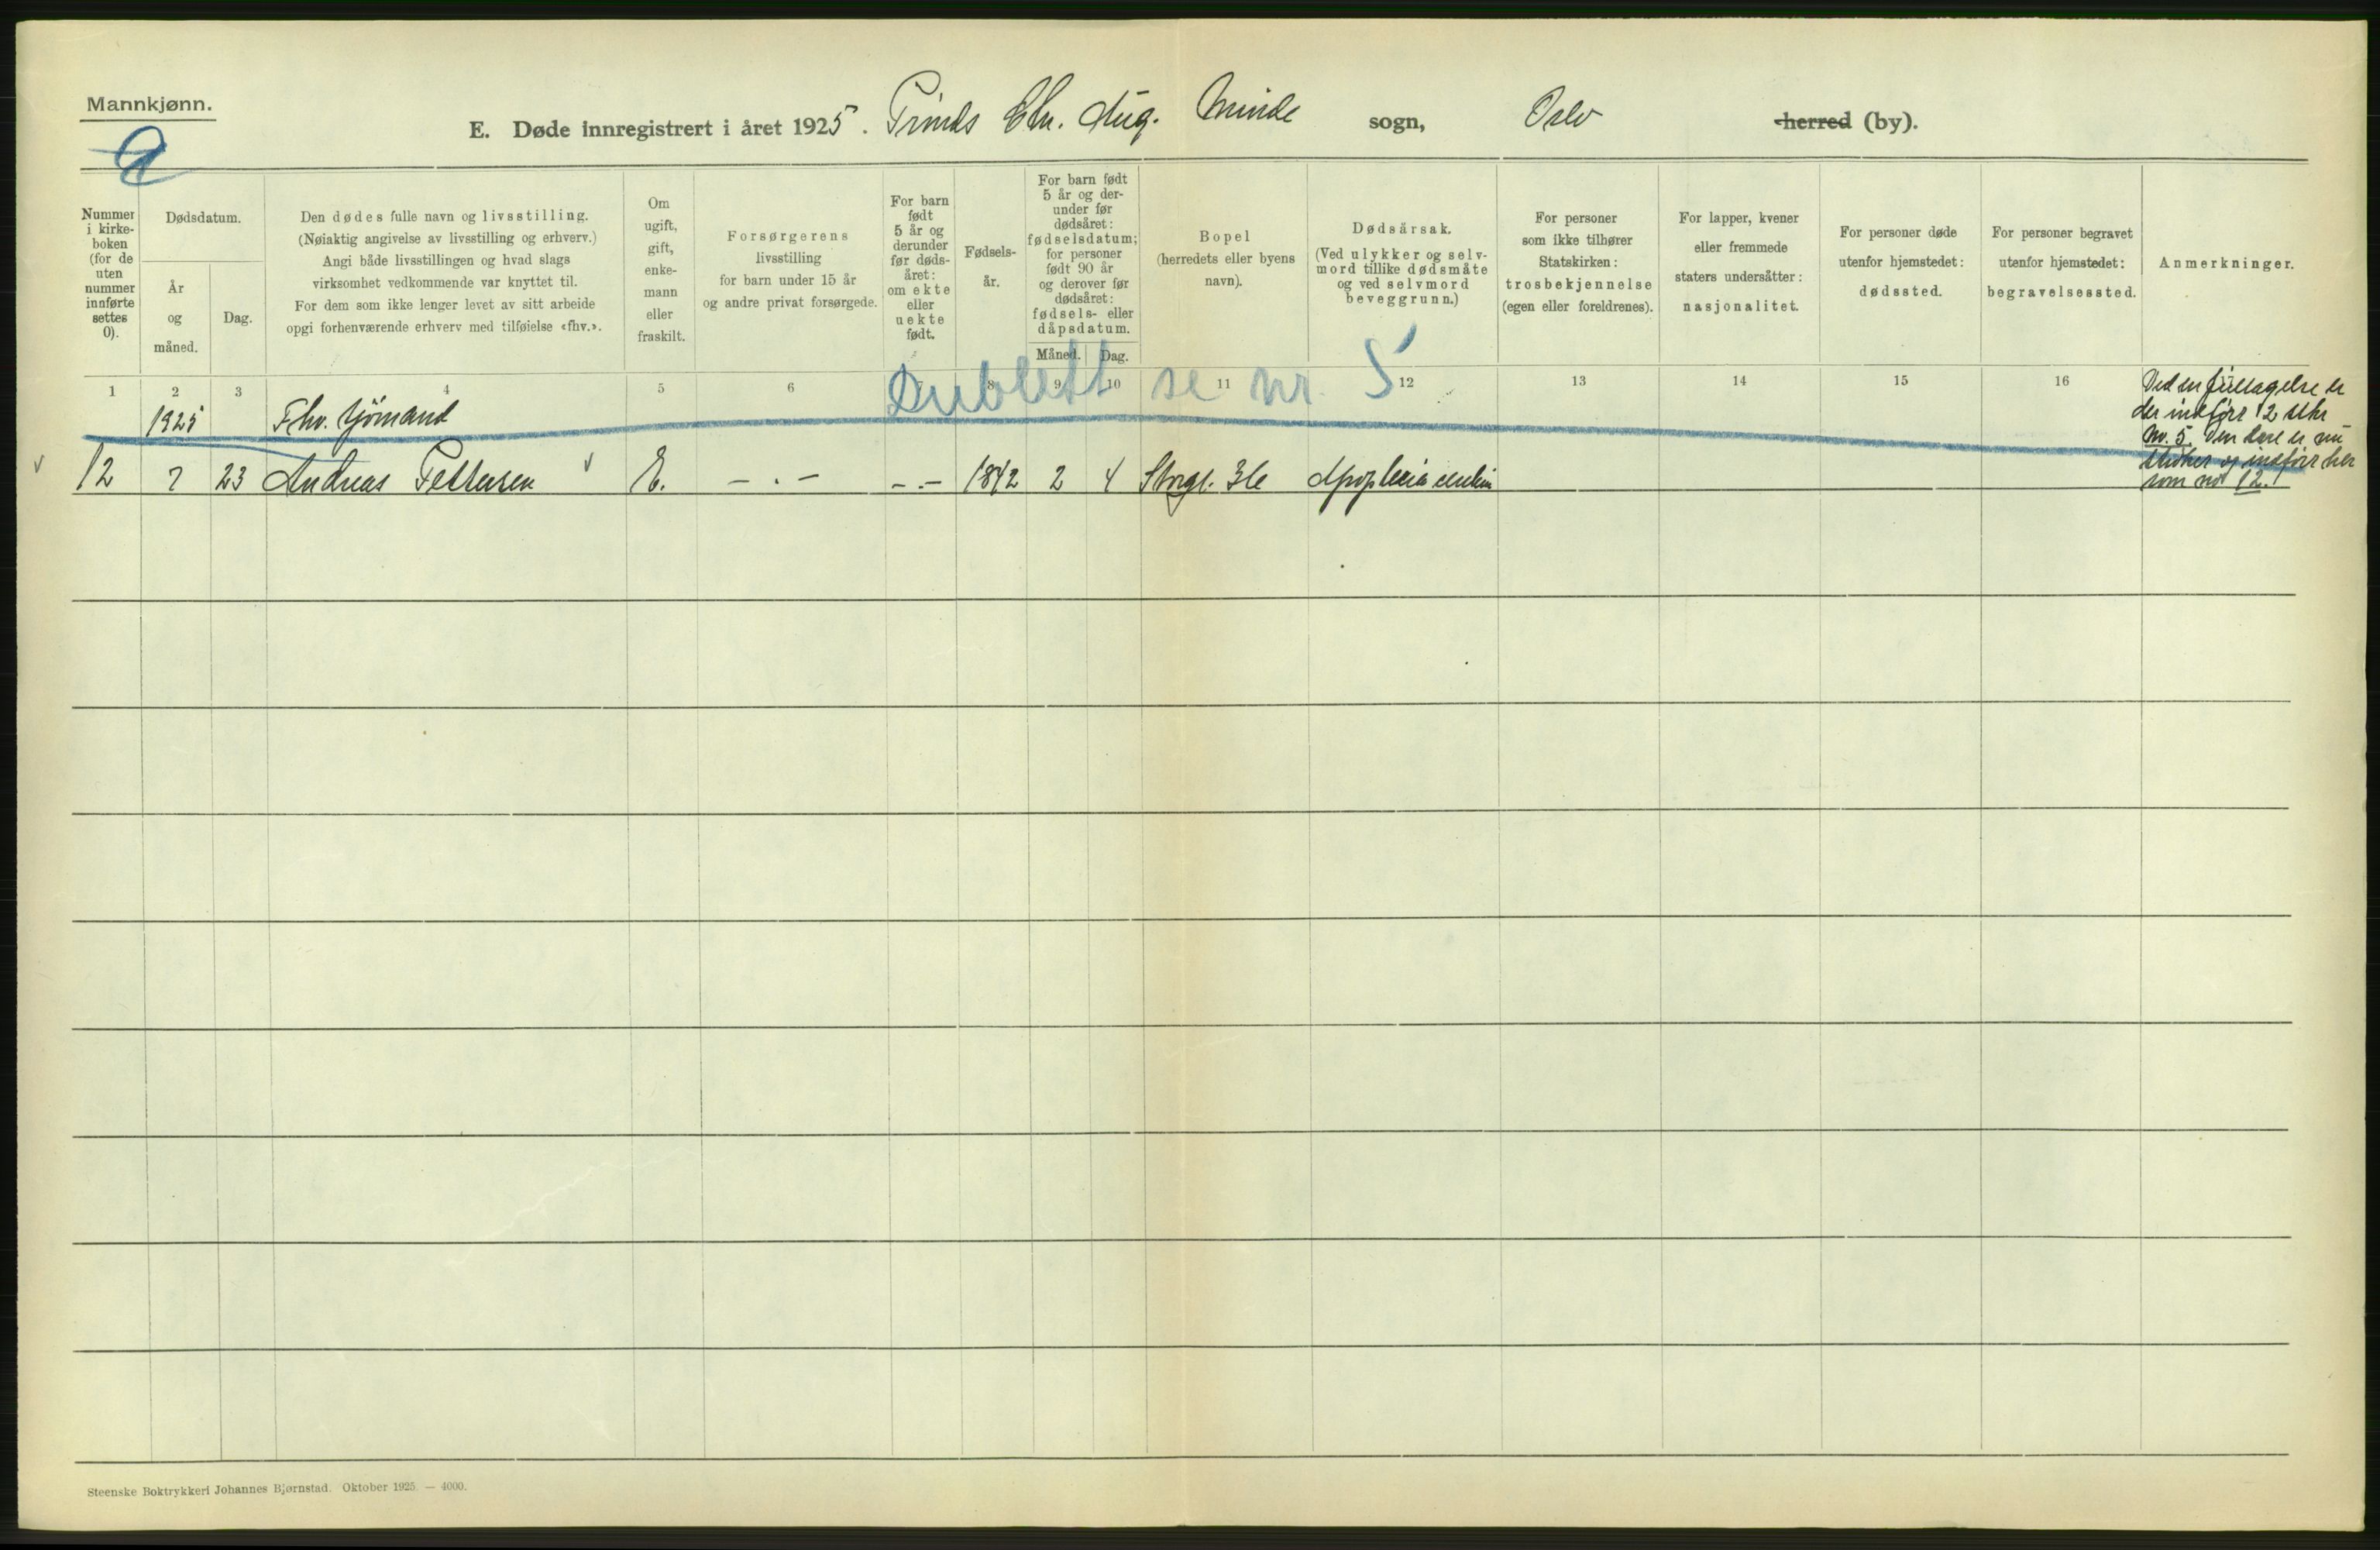 Mannkjønn.
E. Døde innregistrert i året 1925. Prinds Chr. Aug. Minde sogn, Oslo herred (by).
Nummer i kirke-boken (for de uten nummer innførte settes 0).
Dødsdatum.
År og måned.
Dag.
Den dødes fulle navn og livsstilling.
(Nøiaktig angivelse av livsstilling og erhverv.)
Angi både livsstillingen og hvad slags
virksomhet vedkommende var knyttet til.
For dem som ikke lenger levet av sitt arbeide
opgi forhenværende erhverv med tilføielse «fhv.».
Om ugift, gift, enke-mann eller fraskilt.
Forsørgerens
livsstilling
for barn under 15 år
og andre privat forsørgede.
For barn født 5 år og derunder før døds-året: om ekte eller uekte født.
Fødsels-år.
For barn født 5 år og der-under før dødsåret: fødselsdatum; for personer født 90 år og derover før dødsåret: fødsels- eller dåpsdatum.
Måned. Dag.
Bopel
(herredets eller byens
navn).
Dødsårsak.
(Ved ulykker og selv-
mord tillike dødsmåte
og ved selvmord
beveggrunn.)
For personer
som ikke tilhører
Statskirken:
trosbekjennelse
(egen eller foreldrenes).
For lapper, kvener
eller fremmede
staters undersåtter:
nasjonalitet.
For personer døde
utenfor hjemstedet:
dødssted.
For personer begravet
utenfor hjemstedet:
begravelsessted.
Anmerkninger.
1 2 3 4 5 6 7 8 9 10 11 12 13 14 15 16
Dublett se nr. 5
1925 Fhv. Sjømand
12 7 23 Andreas Pettersen E. - . - - . - 1842 2 4 Storgt. 36 Apoplexia cerebri
Ved en feiltagelse er
der indført 2 stkr
Nr. 5. Den ene er nu
strøket og indført her
som no 12.
Steenske Boktrykkeri Johannes Bjørnstad. Oktober 1925. — 4000.